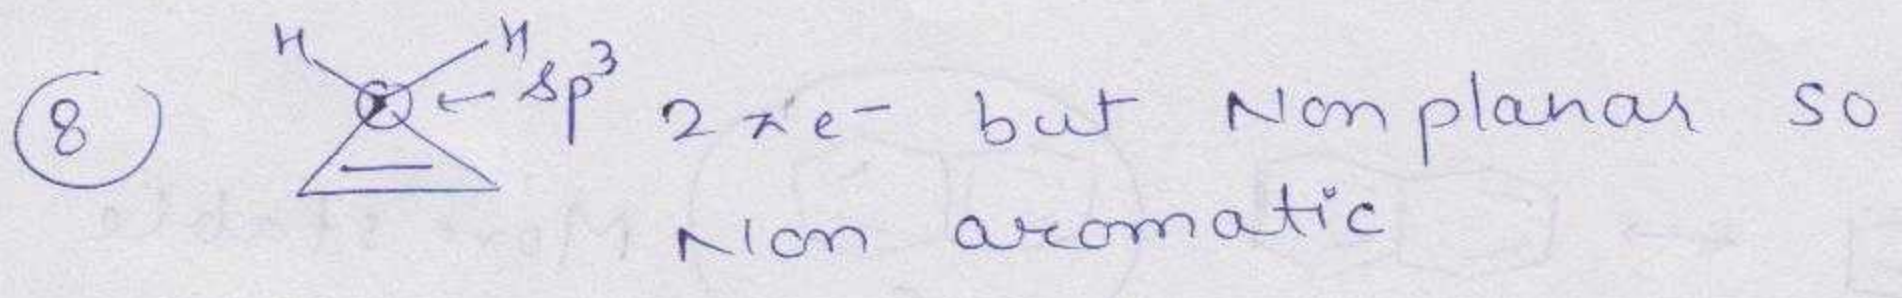 H H
⑧ ← sp³ 2πe⁻ but Non planar so
Non aromatic